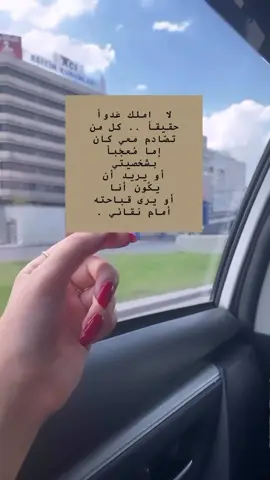 لا املك عدواً
حقيقاً .. كل من
تصادم معي كان
إما مُعجباً
بشخصيتي
أو يريد أن
يكون أنا
أو يرى قباحته
أمام نقائي .